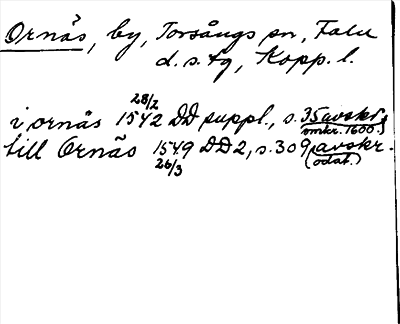 Ornäs, by, Torsångs sn, Falu
d. s. tg, Kopp. l.
i ornäs 1542 28/2 DD suppl., s. 35 avskr. (omkr. 1600.)
till Ornäs 1549 26/3 DD 2, s. 309, avskr. (odat.)